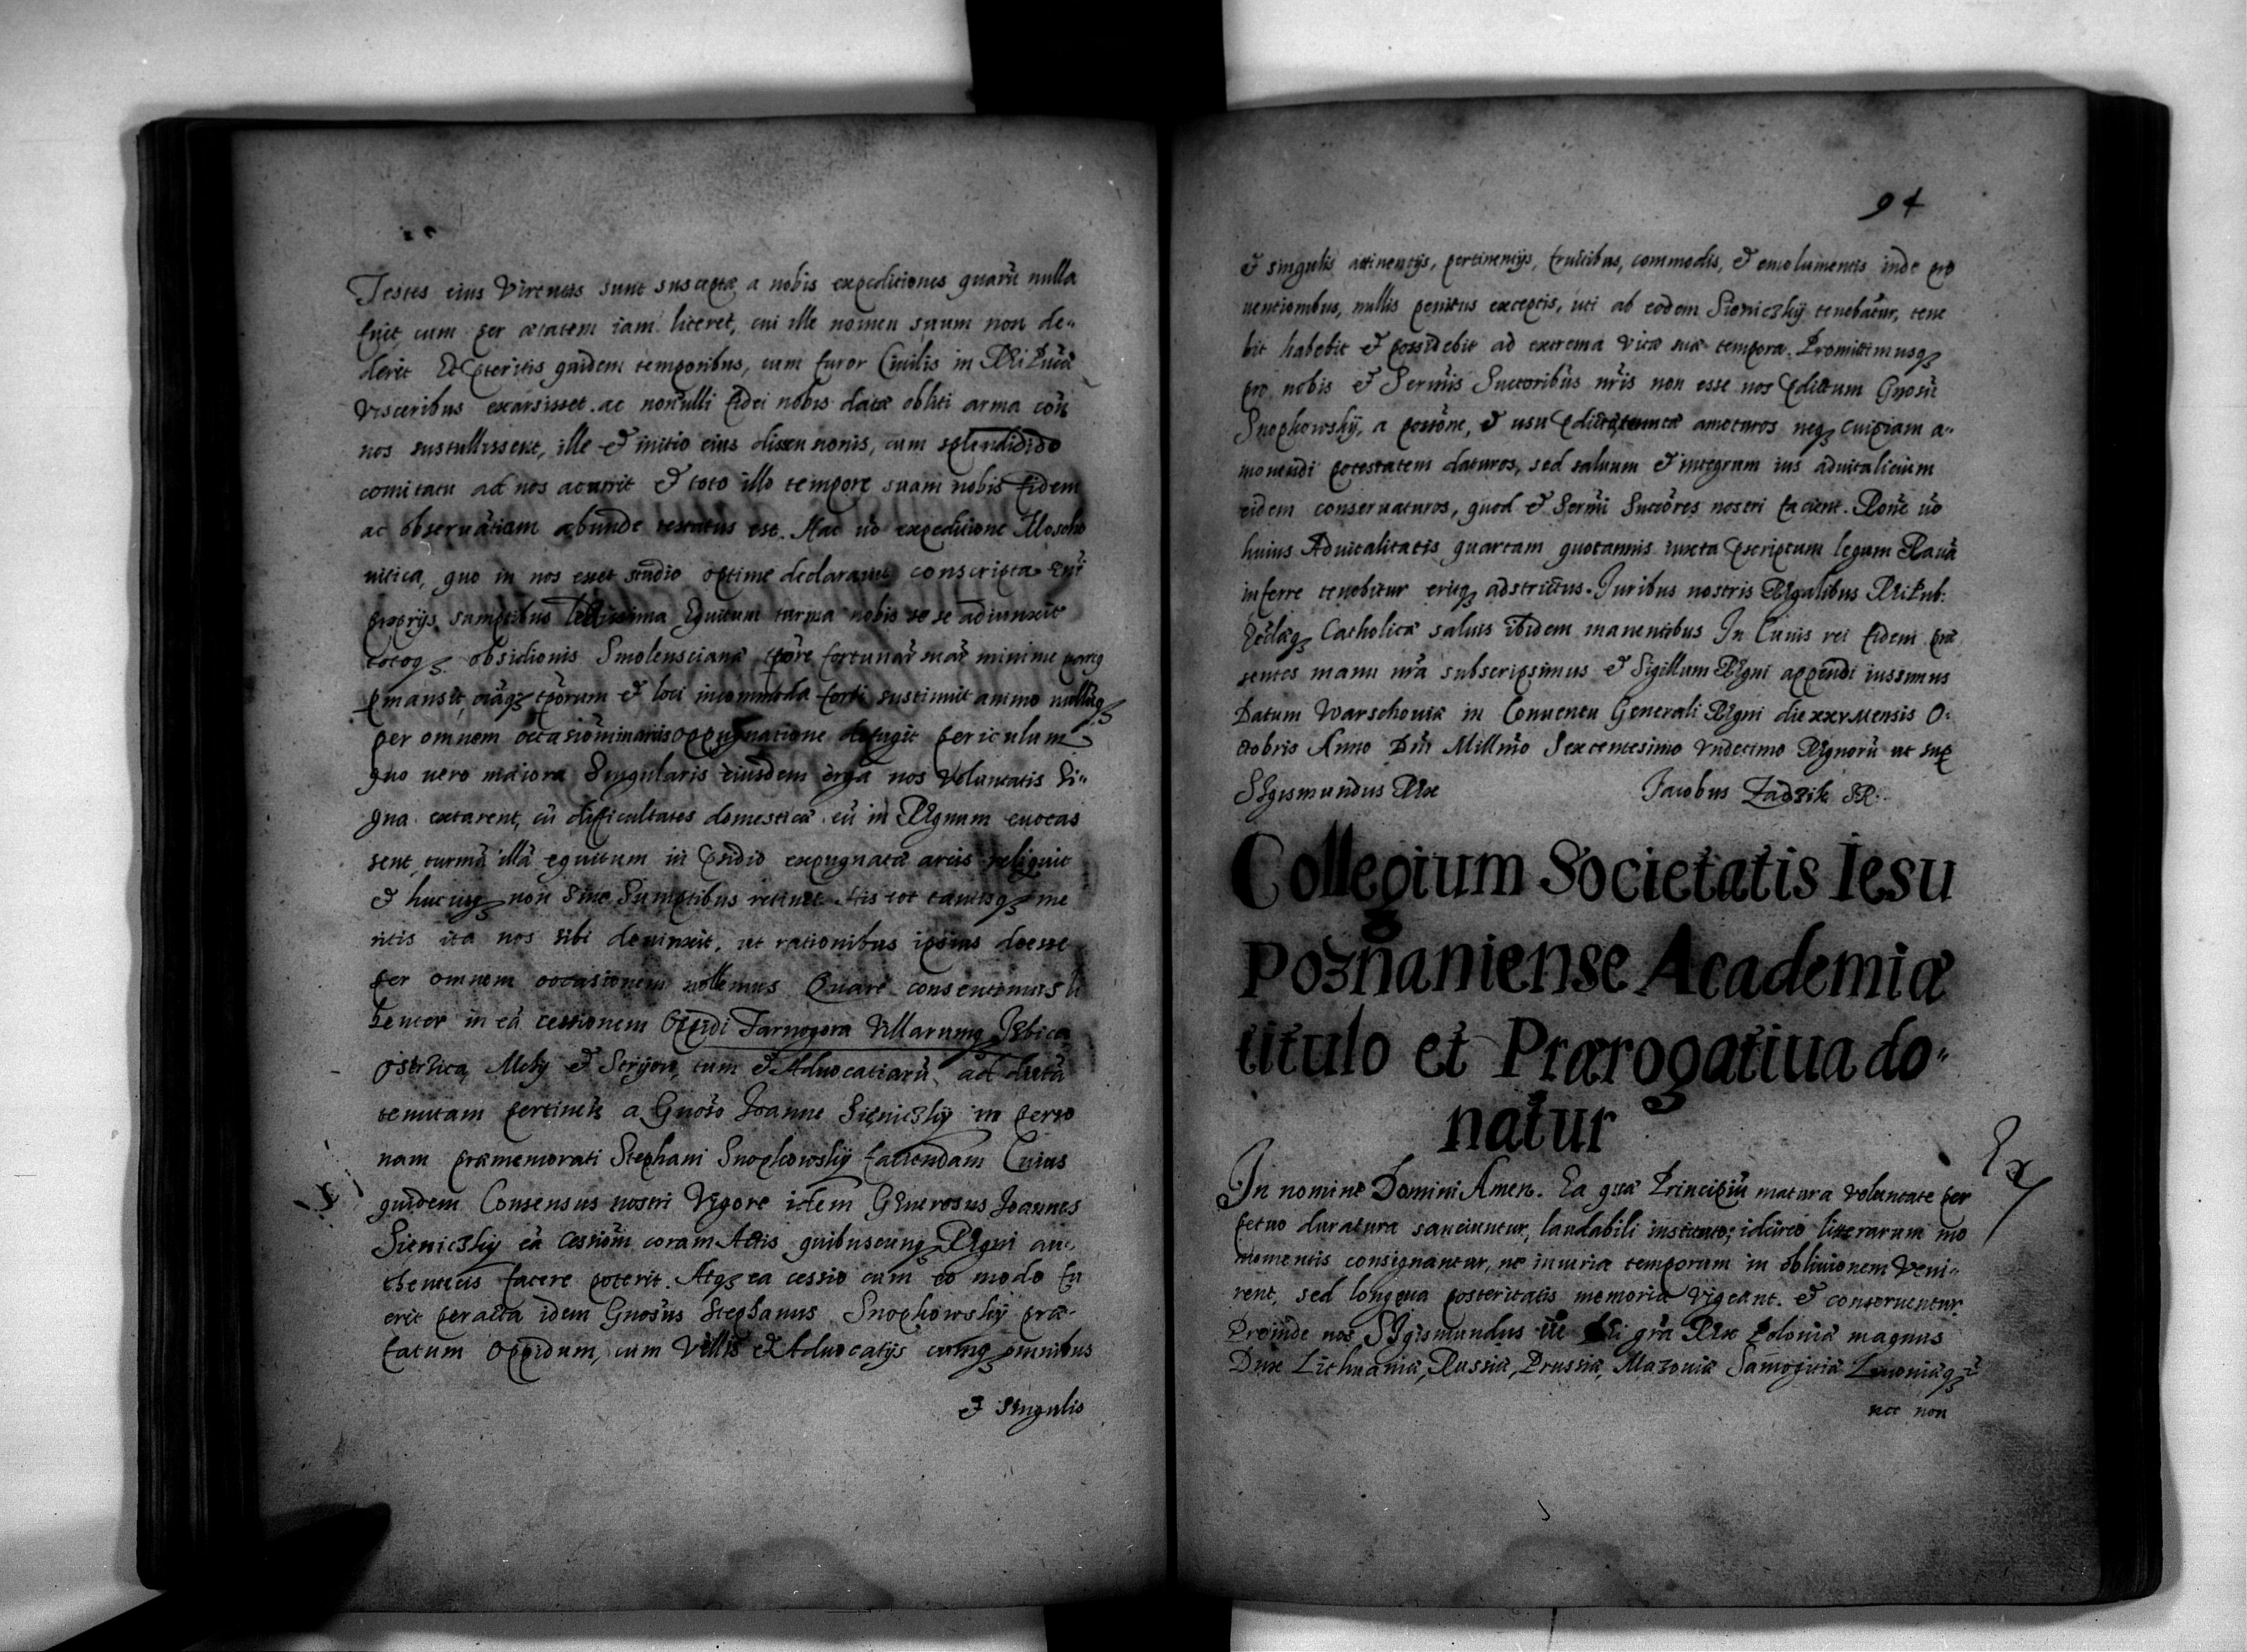 Testes eius Virtutis sunt susceptæ a nobis expeditiones quarũ nulla
fuit, cum per ætatem iam liceret, cui ille nomen suum non de„
derit Et pteritis quidem temporibus, cum furor Ciuilis in Rei Pub
visceribus exarsisset ac nonulli fidei nobis datæ obliti arma con
nos sustullissent, ille & initio eius dissensionis, cum splendidido
comitatu ad nos acurrit & toto illo tempore suam nobis fidem
ac obseruãtiam abunde testatus est. Hac uo expeditione Moscho
uitica, quo in nos esset studio optime declarauit conscripta eni
proprijs sumptibus lectissima Equitum turma nobis se se adiunxit
totoq obsidionis Smolensciana tpore fortunar suar minime
pmansit, tporum & loci incommoda forti sustinuit animo nullũq
per omnem oppugnatione defugit periculum
quo uero maiora Singularis eiusdem erga nos Voluntatis Si„
gna extarent, cũ dificultates domesticæ eũ in Regnum euocas
sent, turmã illã equitum in psidio expugnatæ arcis reliquit
& hucusq non sine Sumptibus retinet. His tot tantisq me
ritis ita nos sibi deuinxit, ut rationibus ipsius deesse
per omnem occasionem nollemus Quare consentimus li
benter in eã cessionem Oppidi Tarnogora Villarumq Isbica
Ostrzica Mchy & Strijow, tum & Aduocatiarũ, ad dictã
tenutam pertinen a Gnoso Joanne Sieniczky in perso
nam præmemorati Stephani Snopkowsky faciendam Cuius
quidem Consensus nostri Vigore idem Generosus Joannes
Sieniczky eã Cessionẽ coram Actis quibuscunq Regni au„
thenticis facere poterit. Atq ea cessio cum eo modo fu
erit peracta idem Gnosus Stephanus Snopkowsky præ-
fatum Oppidum, cum Villis & Aduocatijs cumq omnibus
& singulis
94
& singulis attinentijs, pertinentijs, fructibus, commodis, & emolumentis inde pro
uentionibus, nullis penitus exceptis, uti ab eodem Sieniczky tenebatur, tene
bit habebit & possidebit ad extrema vitæ suæ tempora. Promittimusq
pro nobis & Sermis Succoribus nris non esse nos pdictum Gnosũ
Snopkowsky, a possione, & usu pdictæ tenutæ amoturos neq cuipiam a„
mouendi potestatem daturos, sed saluum & integrum ius aduitalicium
eidem conseruaturos, quod & Sermi Succores nostri facient. Rone uo
huius Aduitalitatis quartam quotannis iuxta pscriptum legum Rauã
inferre tenebitur eritq adstrictus. Juribus nostris Regalibus Rei Pub:
Ecclæq Catholicæ saluis ibidem manentibus In Cuius rei fidem præ
sentes manu nrã subscripsimus & Sigillum Regni appendi iussimus
Datum Warschouiæ in Conuentu Generali Regni die xxv Mensis O„
ctobris Anno Dni Millmo Sexcentesimo Vndecimo Regnorũ ut sup
SIgismundus Rex Jacobus Zadzik SR.
Collegium Societatis Iesu
Poznaniense Academiæ
titulo et Prærogatiua do„
natur
In nomine Domini Amen. Ea quæ Principiũ matura voluntate per
petuo duratura sanciuntur, laudabili instituto; idcirco litterarum mo
numentis consignantur, ne iniuriæ temporum in obliuionem Veni„
rent, sed longæua posteritatis memoria Vigeant. & conseruentur
Proinde nos SIgismundus iii Dei gra Rex Poloniæ magnus
Dux Lithuaniæ, Russiæ, Prussiæ, Mazouiæ Samogitiæ Liuoniæq
nec non